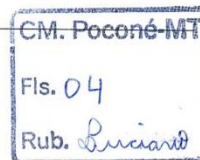 CM. Poconé-MT
Fls. 04
Rub. Luciano